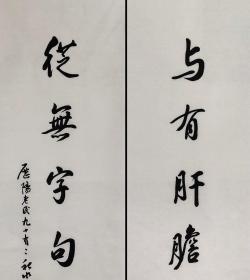 与有肝膽
從無字句
歷陽老民九十有二秋水